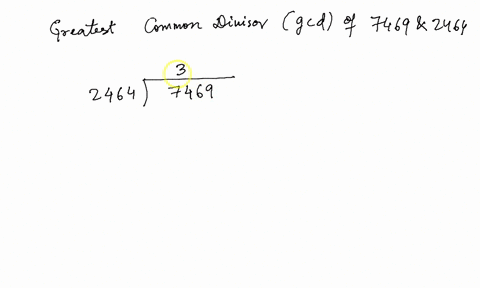 Greatest Common Divisor (gcd) of 7469 & 2464
3
2464 ) 7469